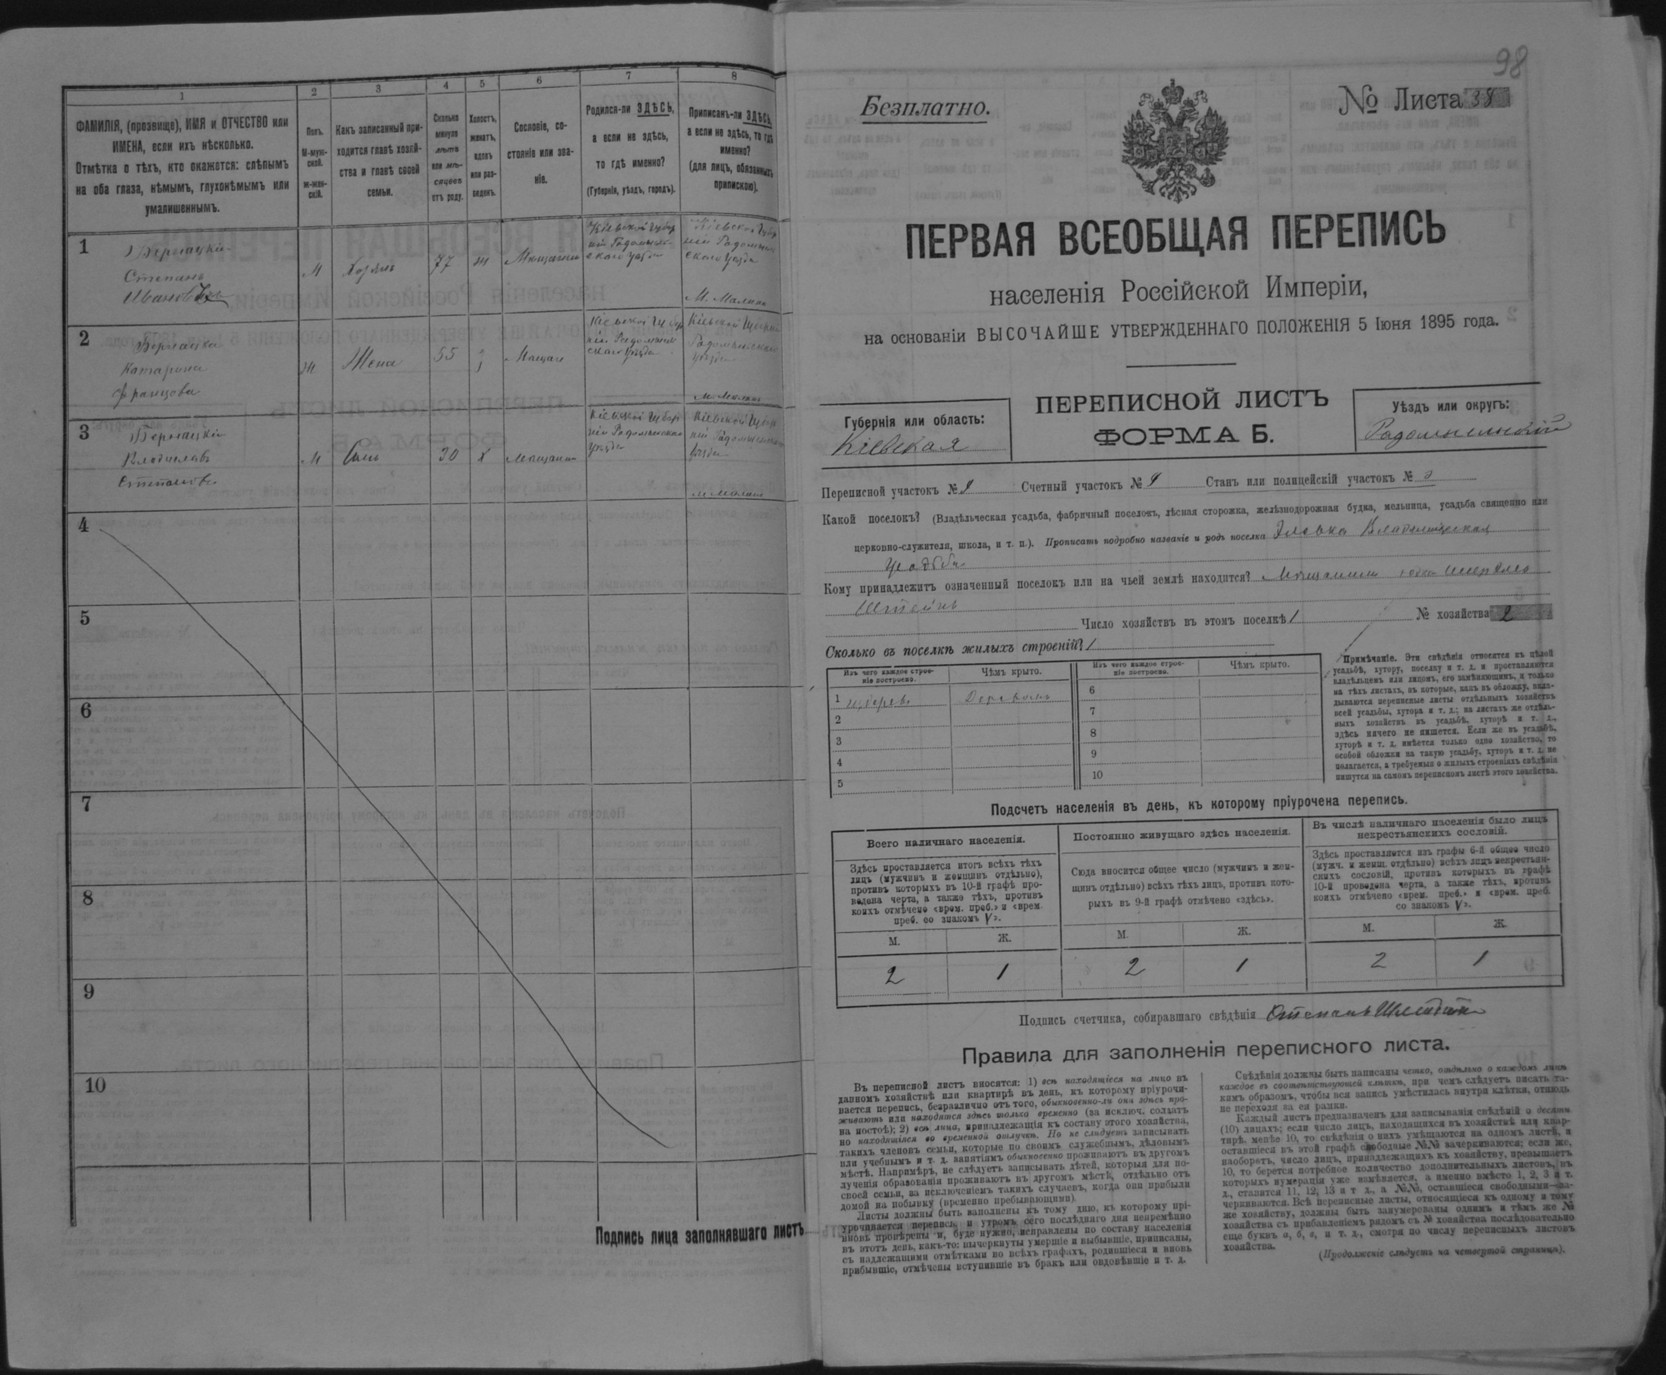 1
2
3
4
5
6
7
8
ФАМИЛІЯ, (прозвище), ИМЯ и ОТЧЕСТВО или
ИМЕНА, если ихъ нѣсколько.
Отмѣтка о тѣхъ, кто окажется: слѣпымъ
на оба глаза, нѣмымъ, глухонѣмымъ или
умалишеннымъ.
Полъ.
М-муж-
ской.
Ж-жен-
скій.
Какъ записанный при-
ходится главѣ хозяй-
ства и главѣ своей
семьи.
Сколько
минуло
лѣтъ
или мѣ-
сяцевъ
отъ роду.
Холостъ,
женатъ,
вдовъ
или раз-
веденъ.
Сословіе, со-
стояніе или зва-
ніе.
Родился-ли ЗДѢСЬ,
а если не здѣсь,
то гдѣ именно?
(Губернія, уѣздъ, городъ).
Приписанъ-ли ЗДѢСЬ,
а если не здѣсь, то гдѣ
именно?
(для лицъ, обязанныхъ
припискою).
1
Степанъ
Ивановъ
М
77
2
Жена
55
3
Владиславъ
М
Сынъ
30
Х
4
5
6
7
8
9
10
Подпись лица заполнявшаго листъ
98
Безплатно.
№ Листа 38
ПЕРВАЯ ВСЕОБЩАЯ ПЕРЕПИСЬ
населенія Россійской Имперіи,
на основаніи ВЫСОЧАЙШЕ УТВЕРЖДЕННАГО ПОЛОЖЕНІЯ 5 Іюня 1895 года.
ПЕРЕПИСНОЙ ЛИСТЪ
ФОРМА Б.
Губернія или область:
Кіевская
Уѣздъ или округъ:
Радомысльскій
Переписной участокъ № Счетный участокъ № Станъ или полицейскій участокъ №
Какой поселокъ? (Владѣльческая усадьба, фабричный поселокъ, лѣсная сторожка, желѣзнодорожная будка, мельница, усадьба священно или
церковно-служителя, школа, и т. п.). Прописать подробно названіе и родъ поселка
Усадьба
Кому принадлежитъ означенный поселокъ или на чьей землѣ находится?
Штейнъ
Число хозяйствъ въ этомъ поселкѣ 1 № хозяйства 2
Сколько въ поселкѣ жилыхъ строеній? 1
Изъ чего каждое строе-
ніе построено.
Чѣмъ крыто.
Изъ чего каждое строе-
ніе построено.
Чѣмъ крыто.
1
2
3
4
5
6
7
8
9
10
Примѣчаніе. Эти свѣдѣнія относятся къ цѣлой
усадьбѣ, хутору, поселку и т. д. и проставляются
владѣльцемъ или лицомъ, его замѣняющимъ, и только
на тѣхъ листахъ, въ которые, какъ въ обложку, вкла-
дываются переписные листы отдѣльныхъ хозяйствъ
всей усадьбы, хутора и т. д.; на листахъ же отдѣль-
ныхъ хозяйствъ въ усадьбѣ, хуторѣ и т. д.,
здѣсь ничего не пишется. Если же въ усадьбѣ,
хуторѣ и т. д. имѣется только одно хозяйство, то
особой обложки на такую усадьбу, хуторъ и т. д. не
полагается, а требуемыя о жилыхъ строеніяхъ свѣдѣнія
пишутся на самомъ переписномъ листѣ этого хозяйства.
Подсчетъ населенія въ день, къ которому пріурочена перепись.
Всего наличнаго населенія.
Постоянно живущаго здѣсь населенія.
Въ числѣ наличнаго населенія было лицъ
некрестьянскихъ сословій.
Здѣсь проставляется итогъ всѣхъ тѣхъ
лицъ (мужчинъ и женщинъ отдѣльно),
противъ которыхъ въ 10-й графѣ про-
ведена черта, а также тѣхъ, противъ
коихъ отмѣчено «врем. преб.» и «врем.
преб. со знакомъ V».
Сюда вносится общее число (мужчинъ и жен-
щинъ отдѣльно) всѣхъ тѣхъ лицъ, противъ кото-
рыхъ въ 9-й графѣ отмѣчено «здѣсь».
Здѣсь проставляется изъ графы 6-й общее число
(мужч. и женщ. отдѣльно) всѣхъ лицъ некрестьян-
скихъ сословій, противъ которыхъ въ графѣ
10-й проведена черта, а также тѣхъ, противъ
коихъ отмѣчено «врем. преб.» и «врем. преб.
со знакомъ V».
М. Ж. М. Ж. М. Ж.
2 1 2 1 2 1
Подпись счетчика, собиравшаго свѣдѣнія
Правила для заполненія переписного листа.
Въ переписной листъ вносятся: 1) всѣ находящіеся на лицо въ
данномъ хозяйствѣ или квартирѣ въ день, къ которому пріурочи-
вается перепись, безразлично отъ того, обыкновенно-ли они здѣсь про-
живаютъ или находятся здѣсь только временно (за исключ. солдатъ
на постоѣ); 2) всѣ лица, принадлежащія къ составу этого хозяйства,
но находящіяся во временной отлучкѣ. Но не слѣдуетъ записывать
такихъ членовъ семьи, которые по своимъ служебнымъ, дѣловымъ
или учебнымъ и т. д. занятіямъ обыкновенно проживаютъ въ другомъ
мѣстѣ. Напримѣръ, не слѣдуетъ записывать дѣтей, которыя для по-
лученія образованія проживаютъ въ другомъ мѣстѣ, отдѣльно отъ
своей семьи, за исключеніемъ такихъ случаевъ, когда они прибыли
домой на побывку (временно пребывающими).
Листы должны быть заполнены къ тому дню, къ которому прі-
урочивается перепись, и утромъ сего послѣдняго дня непремѣнно
вновь провѣрены и, буде нужно, исправлены по составу населенія
въ этотъ день, какъ-то: вычеркнуты умершіе и выбывшіе, приписаны,
съ надлежащими отмѣтками во всѣхъ графахъ, родившіеся и вновь
прибывшіе, отмѣчены вступившіе въ бракъ или овдовѣвшіе и т. д.
Свѣдѣнія должны быть написаны четко, отдѣльно о каждомъ лицѣ
каждое въ соотвѣтствующей клѣткѣ, при чемъ слѣдуетъ писать та-
кимъ образомъ, чтобы вся запись умѣстилась внутри клѣтки, отнюдь
не переходя за ея рамки.
Каждый листъ предназначенъ для записыванія свѣдѣній о десяти
(10) лицахъ; если число лицъ, находящихся въ хозяйствѣ или квар-
тирѣ, менѣе 10, то свѣдѣнія о нихъ умѣщаются на одномъ листѣ, и
оставшіеся въ этой графѣ свободные №№ зачеркиваются; если же,
наоборотъ, число лицъ, принадлежащихъ къ хозяйству, превышаетъ
10, то берется потребное количество дополнительныхъ листовъ, въ
которыхъ нумерація уже измѣняется, а именно вмѣсто 1, 2, 3 и т.
д., ставится 11, 12, 13 и т. д., а №№, оставшіеся свободными за-
черкиваются. Всѣ переписные листы, относящіеся къ одному и тому
же хозяйству, должны быть занумерованы однимъ и тѣмъ же №
хозяйства съ прибавленіемъ рядомъ съ № хозяйства послѣдовательно
еще буквъ а, б, в, и т. д., смотря по числу переписныхъ листовъ
хозяйства.
(Продолженіе слѣдуетъ на четвертой страницѣ).